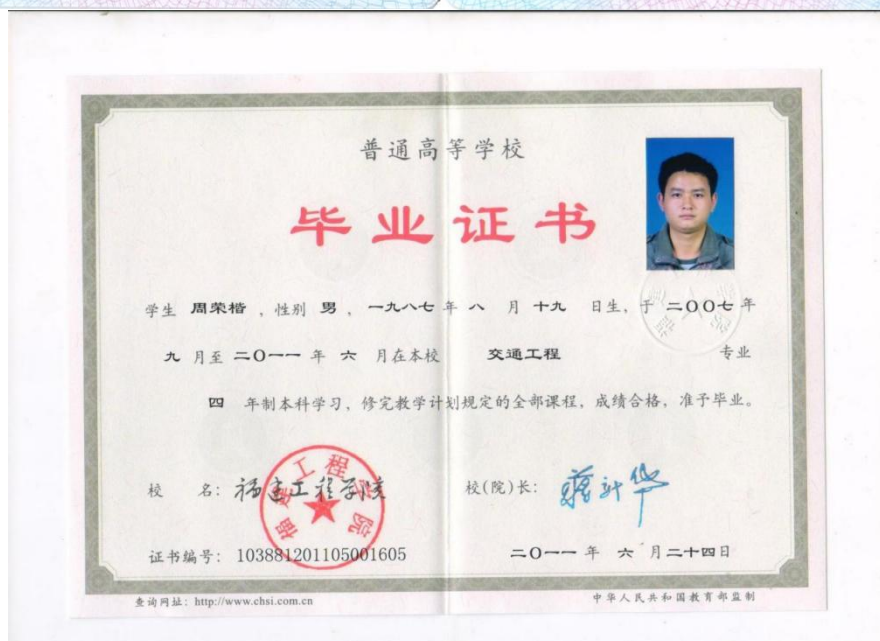 普通高等学校
毕业证书
学生 周荣楷 , 性别 男 , 一九八七 年 八 月 十九 日生, 于 二〇〇七 年
九 月至 二〇一一 年 六 月在本校 交通工程 专业
四 年制本科学习, 修完教学计划规定的全部课程, 成绩合格, 准予毕业。
校 名: 福建工程学院
福建工程学院
校(院)长: 蒋新华
证书编号: 103881201105001605
二〇一一 年 六 月二十四日
查询网址: http://www.chsi.com.cn
中华人民共和国教育部监制